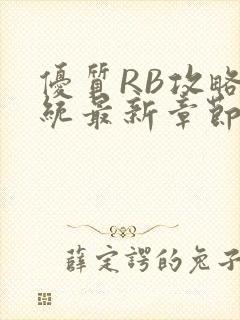 優質RB攻略
統最新章節
薛定諤的兔子